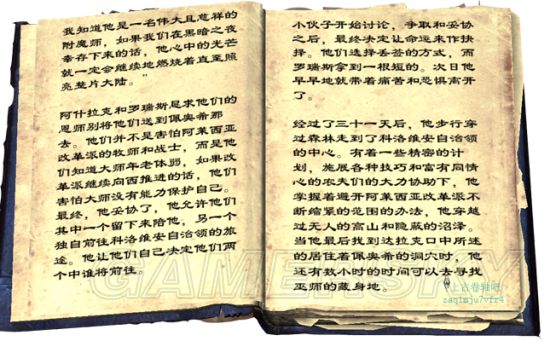 我知道他是一名伟大且慈祥的
附魔师，如果我们在黑暗之夜
幸存下来的话，他心中的光芒
就一定会继续地燃烧着直至照
亮整片大陆。
阿什拉克和罗瑞斯是求他们的
恩师别将他们送到佩奥希那
去。他们并不是害怕阿莱西亚
改革派的牧师和战士，而是他
们知道大师年老体弱，如果改
革派继续向西推进的话，他们
害怕大师没有能力保护自己。
最终，他妥协了，他允许他们
其中一个留下来陪他，另一个
独自前往科洛维安自治领的旅
途。他让他们自己决定他们两
个中谁将前往。
小伙子开始讨论，争取和妥协
之后，最终决定让命运来作抉
择。他们选择丢签的方式，而
罗瑞斯拿到一根短的。次日他
早早地就带着痛苦和恐惧离开
了。
经过了三十一天后，他步行穿
过森林走到了科洛维安自治领
的中心。有着一些精密的计
划，施展各种技巧和富有同情
心的农夫们的大力协助下，他
掌握着避开阿莱西亚改革派不
断缩紧的范围的办法，他穿越
过无人的高山和隐蔽的沼泽。
当他最后找到达拉克口中所述
的居住着佩奥希的洞穴时，他
还有数小时的时间可以去寻找
巫师的藏身地。
上古卷轴吧
zaqimju7vfr4
GAMERSKY